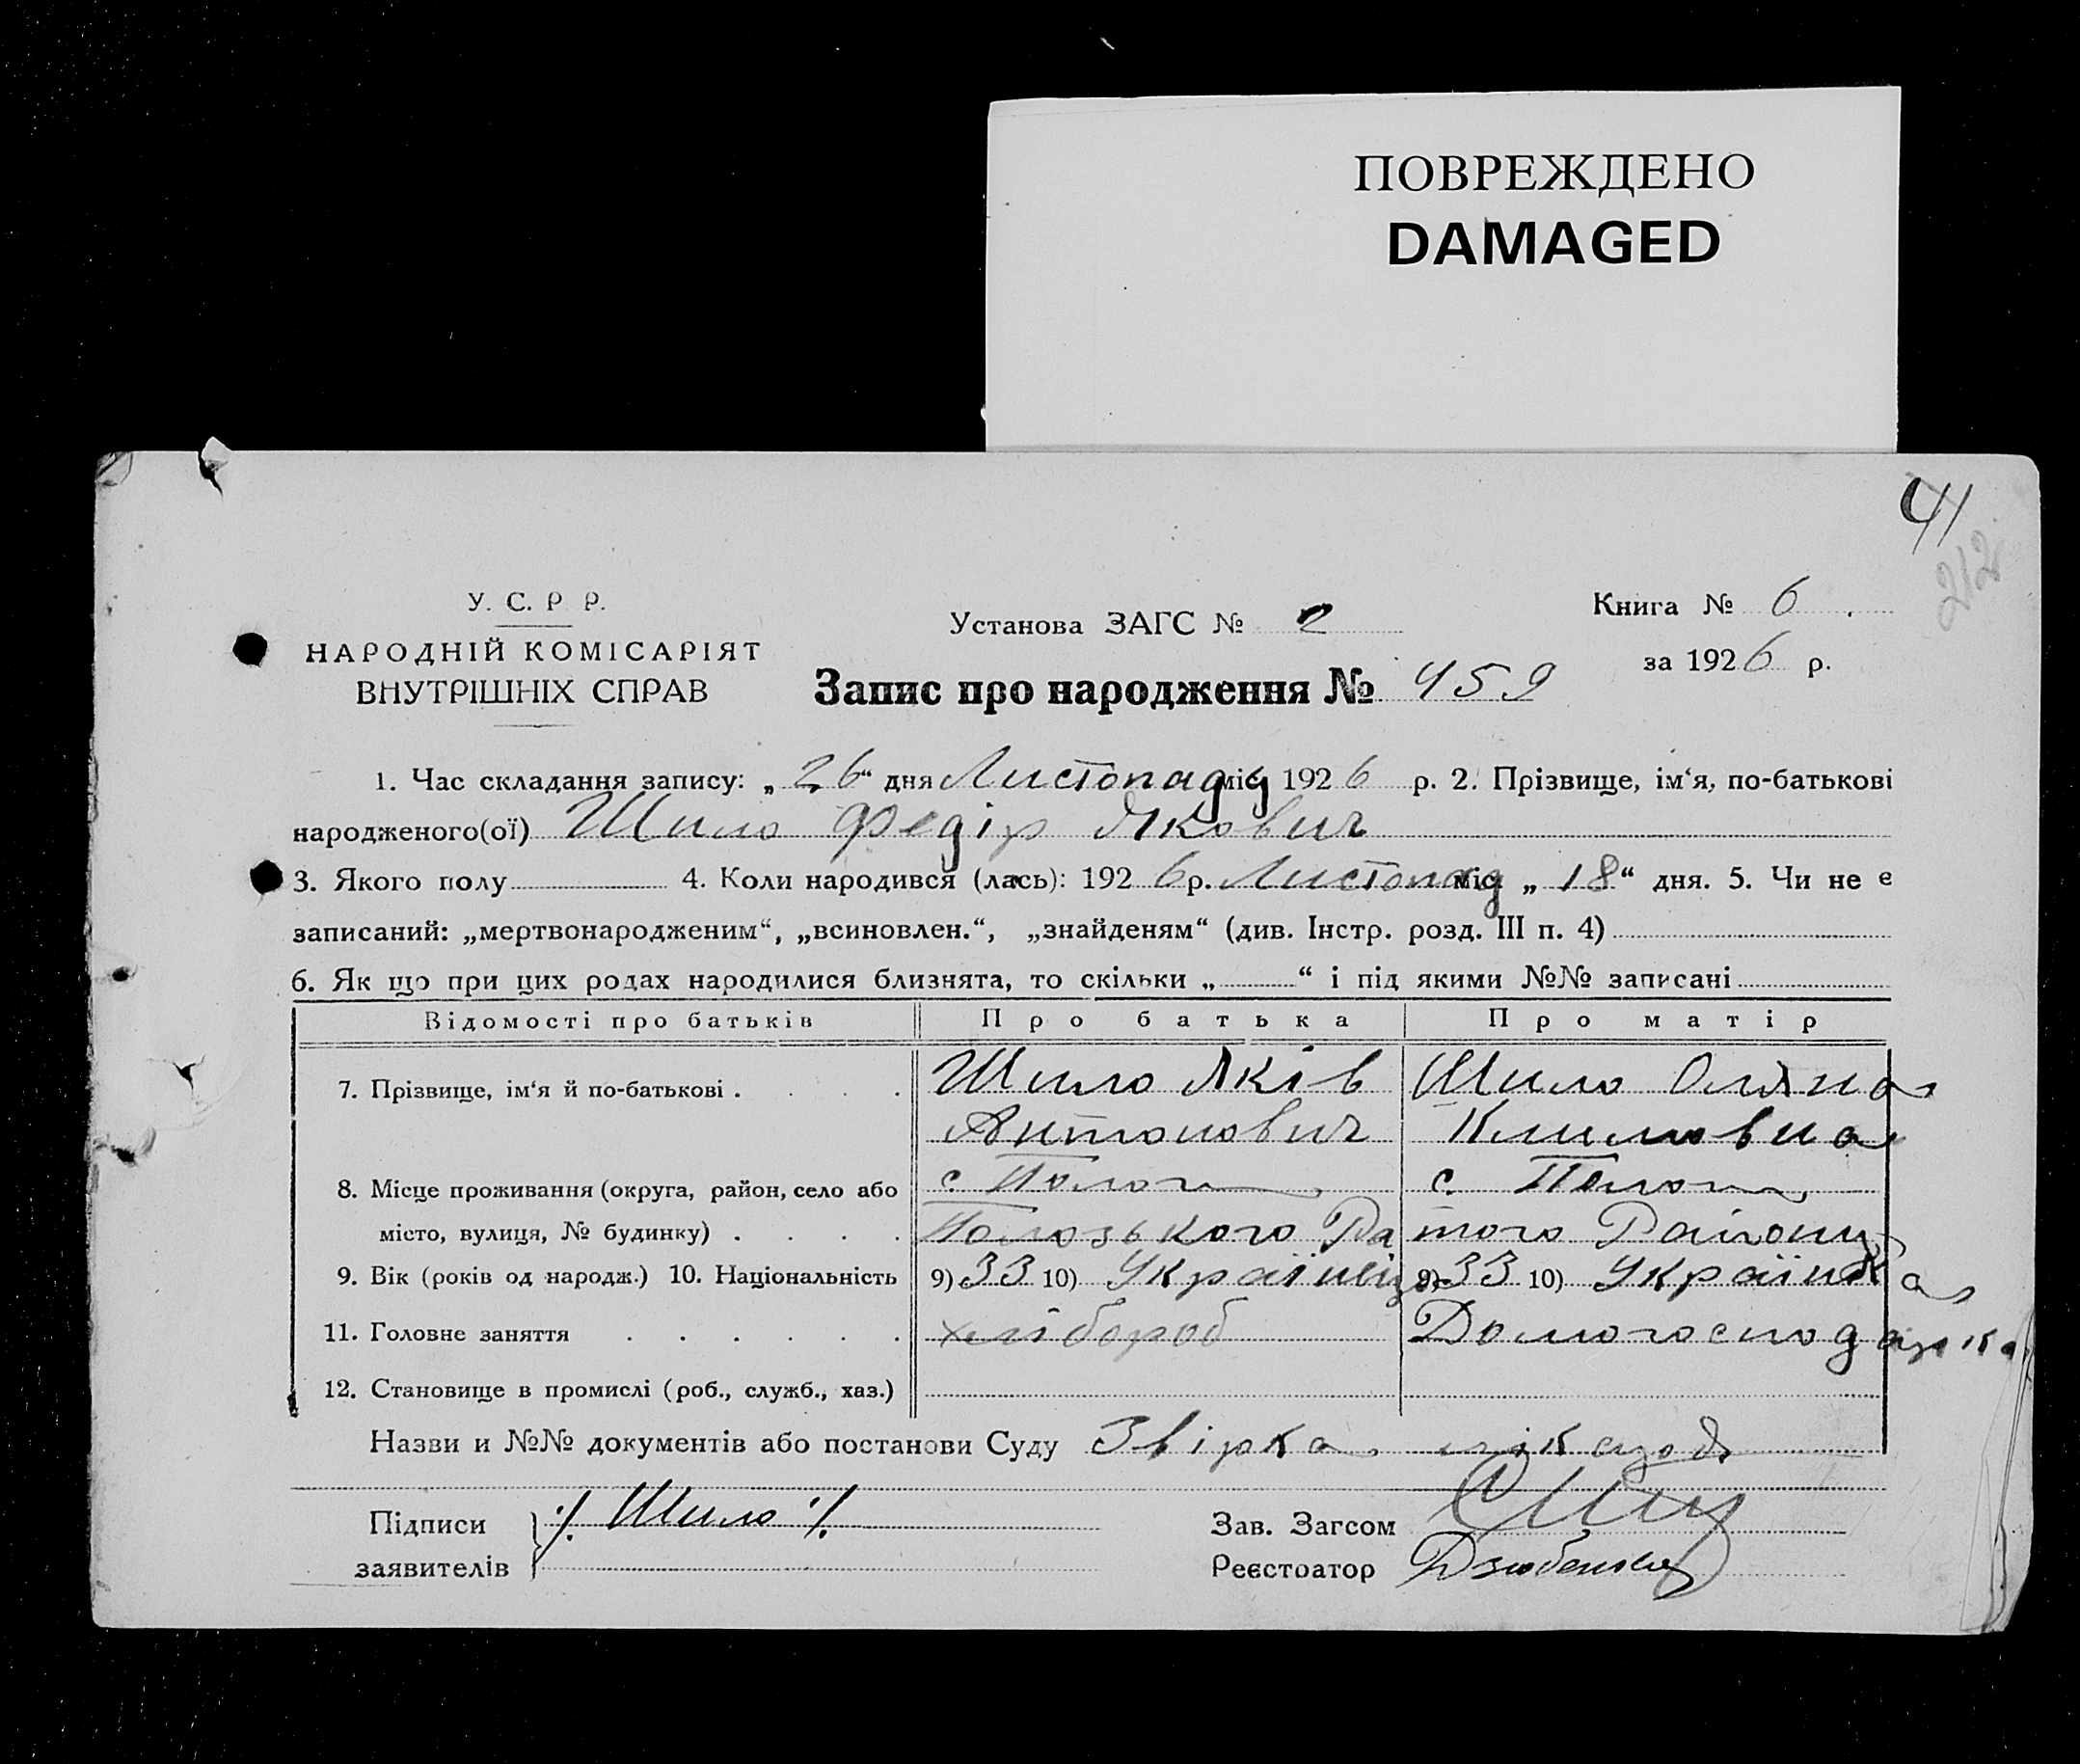 ПОВРЕЖДЕНО
DAMAGED
41
212
У. С. Р Р.
НАРОДНІЙ КОМІСАРІЯТ
ВНУТРІШНІХ СПРАВ
Установа ЗАГС № 2
Книга № 6
за 1926 р.
Запис про народження № 459
1. Час складання запису: „26“ дня Листопаду міс. 1926 р. 2. Прізвище, ім‘я, по-батькові
народженого(ої) Шило Федір Якович
3. Якого полу 4. Коли народився (лась): 1926 р. Листопад міс. „18“ дня. 5. Чи не є
записаний: „мертвонародженим“, „всиновлен.“, „знайденям“ (див. Інстр. розд. III п. 4)
6. Як що при цих родах народилися близнята, то скільки „ “ і під якими №№ записані
Відомості про батьків Про батька Про матір
7. Прізвище, ім‘я й по-батькові . . . . Шило Яків Шило Оляна
Антонович Климовна
8. Місце проживання (округа, район, село або с Пологи с. Пологи
місто, вулиця, № будинку) . . . . Полозького Ра того Району
9. Вік (років од народж.) 10. Національність 9) 33 10) Українець 9) 33 10) Українка
11. Головне заняття . . . . . . хлібороб Домогосподарка
12. Становище в промислі (роб., служб., хаз.)
Назви и №№ документів або постанови Суду Звірка
Підписи ./. Шило ./.
заявителів
Зав. Загсом
Реєстоатор